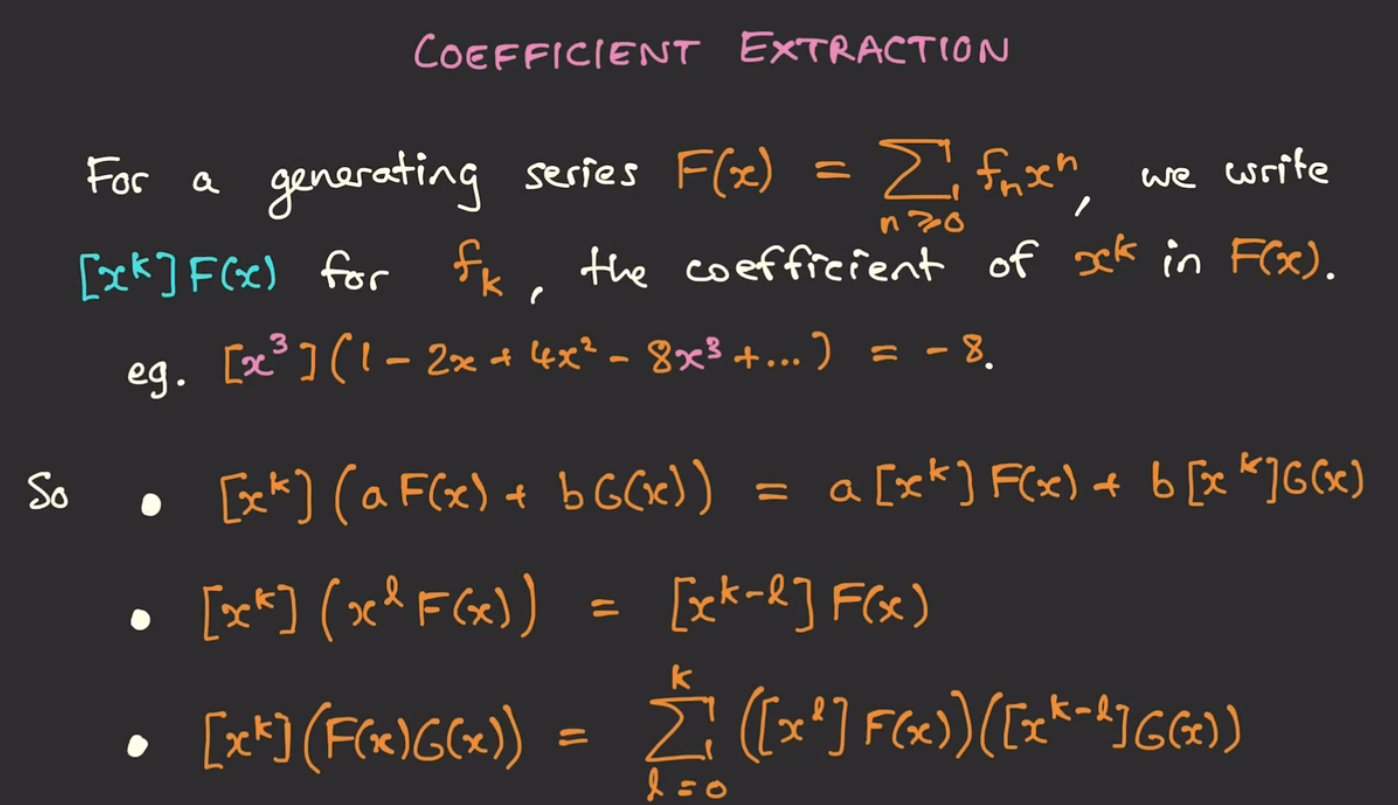 COEFFICIENT EXTRACTION
For a generating series F(x) = ∑_{n⩾0} fₙxⁿ, we write
[xᵏ]F(x) for fₖ, the coefficient of xᵏ in F(x).
eg. [x³](1 - 2x + 4x² - 8x³ + ...) = -8.
So • [xᵏ](aF(x) + bG(x)) = a[xᵏ]F(x) + b[xᵏ]G(x)
• [xᵏ](xˡF(x)) = [xᵏ⁻ˡ]F(x)
• [xᵏ](F(x)G(x)) = ∑_{l=0}^{k} ([xˡ]F(x))([xᵏ⁻ˡ]G(x))